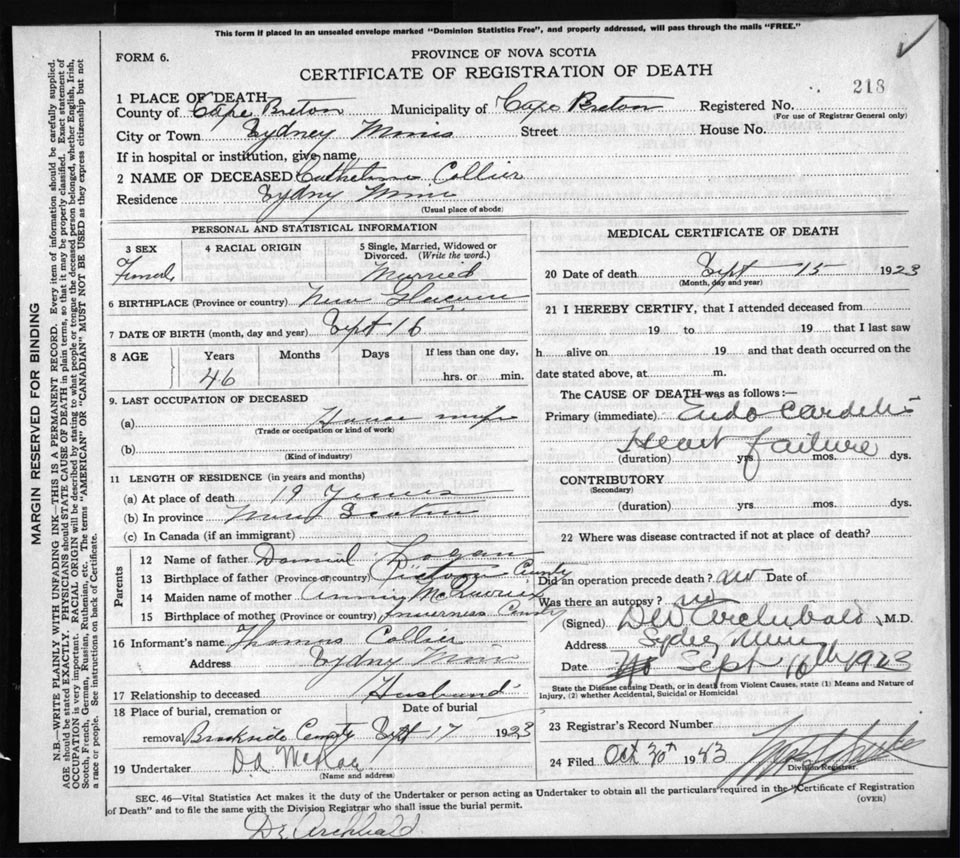 This form if placed in an unsealed envelope marked "Dominion Statistics Free", and properly addressed, will pass through the mails "FREE."
FORM 6.
PROVINCE OF NOVA SCOTIA
CERTIFICATE OF REGISTRATION OF DEATH
218
1 PLACE OF DEATH
County of Cape Breton Municipality of Cape Breton Registered No.
(For use of Registrar General only)
City or Town Sydney Mines Street House No.
If in hospital or institution, give name
2 NAME OF DECEASED Catherine Collier
Residence Sydny Mines
(Usual place of abode)
PERSONAL AND STATISTICAL INFORMATION
3 SEX 4 RACIAL ORIGIN 5 Single, Married, Widowed or Divorced. (Write the word.)
Female Married
6 BIRTHPLACE (Province or country) New Glascow
7 DATE OF BIRTH (month, day and year) Sept 16
8 AGE Years Months Days If less than one day,
46 hrs. or min.
9. LAST OCCUPATION OF DECEASED
(a) House wife
(Trade or occupation or kind of work)
(b)
(Kind of industry)
11 LENGTH OF RESIDENCE (in years and months)
(a) At place of death 19 Years
(b) In province Nova Scotia
(c) In Canada (if an immigrant)
Parents
12 Name of father Daniel Logan
13 Birthplace of father (Province or country) Pictou County
14 Maiden name of mother Annie
15 Birthplace of mother (Province or country) Inverness County
16 Informant's name Thomas Collier
Address Sydny Mines
17 Relationship to deceased Husband
18 Place of burial, cremation or Date of burial
removal Brookside County Sept 17 1923
19 Undertaker D A McRae
(Name and address)
MEDICAL CERTIFICATE OF DEATH
20 Date of death Sept 15 1923
(Month, day and year)
21 I HEREBY CERTIFY, that I attended deceased from
19 to 19 that I last saw
h alive on 19 and that death occurred on the
date stated above, at m.
The CAUSE OF DEATH was as follows:—
Primary (immediate) Endo Carditis
Heart failure
(duration) yrs. mos. dys.
CONTRIBUTORY
(Secondary)
(duration) yrs. mos. dys.
22 Where was disease contracted if not at place of death?
Did an operation precede death? no Date of
Was there an autopsy? no
(Signed) DW Archibald M.D.
Address Sydney Mines
Date Sept 16th 1923
State the Disease causing Death, or in death from Violent Causes, state (1) Means and Nature of
Injury, (2) whether Accidental, Suicidal or Homicidal
23 Registrar's Record Number
24 Filed Oct 30th 1923
Division Registrar
SEC. 46—Vital Statistics Act makes it the duty of the Undertaker or person acting as Undertaker to obtain all the particulars required in the "Certificate of Registration
of Death" and to file the same with the Division Registrar who shall issue the burial permit.
(OVER)
Dr Archibald
MARGIN RESERVED FOR BINDING
N.B.—WRITE PLAINLY WITH UNFADING INK—THIS IS A PERMANENT RECORD. Every item of information should be carefully supplied.
AGE should be stated EXACTLY. PHYSICIANS should STATE CAUSE OF DEATH in plain terms, so that it may be properly classified. Exact statement of
OCCUPATION is very important. RACIAL ORIGIN will be described by stating to what people or tongue the deceased person belonged, whether English, Irish,
Scotch, French, German, Russian, Ruthenian, etc. The terms "AMERICAN" OR "CANADIAN" MUST NOT BE USED as they express citizenship but not
a race or people. See instructions on back of Certificate.